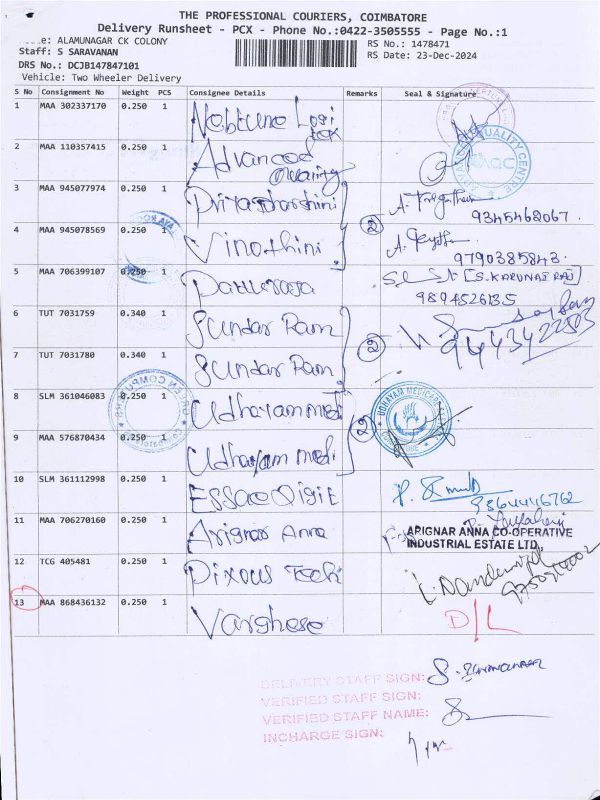 THE PROFESSIONAL COURIERS, COIMBATORE
Delivery Runsheet - PCX - Phone No.:0422-3505555 - Page No.:1
ALAMUNAGAR CK COLONY
RS No.: 1478471
Staff: S SARAVANAN
RS Date: 23-Dec-2024
DRS No.: DCJB147847101
Vehicle: Two Wheeler Delivery
S No Consignment No Weight PCS Consignee Details Remarks Seal & Signature
1 MAA 302337170 0.250 1 Neptune Logi
2 MAA 110357415 0.250 1 Advanced
3 MAA 945077974 0.250 1 Priyadharshini
2 9345462067
4 MAA 945078569 0.250 1 Vinothini
9790385843
5 MAA 706399107 0.250 1
[S. KARUNAI RAJ]
9894526135
6 TUT 7031759 0.340 1 Sundar Ram
2
7 TUT 7031780 0.340 1 Sundar Ram
8 SLM 361046083 0.250 1 Udhayam medi
UDHAYAM MEDICARE
2
9 MAA 576870434 0.250 1 Udhayam medi
10 SLM 361112998 0.250 1 Essae Digit
11 MAA 706270160 0.250 1 Arignar Anna
ARIGNAR ANNA CO-OPERATIVE
INDUSTRIAL ESTATE LTD.
12 TCG 405481 0.250 1 Pixous Tech
13 MAA 868436132 0.250 1 Varghese D/L
DELIVERY STAFF SIGN:
VERIFIED STAFF SIGN:
VERIFIED STAFF NAME:
INCHARGE SIGN: